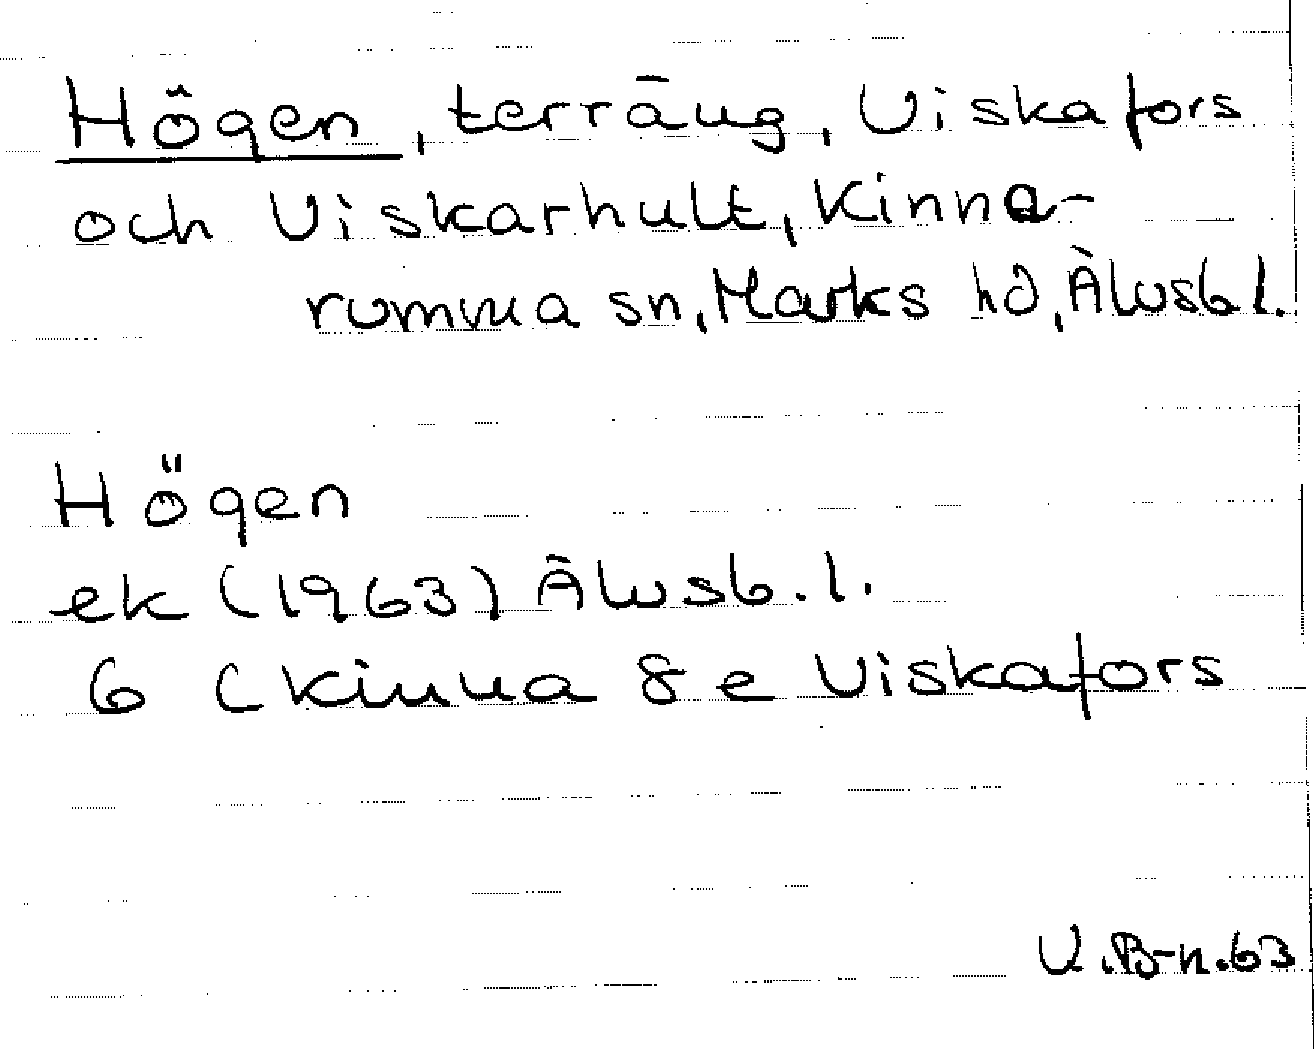 Högen, terräng, Viskafors
och Viskarhult, Kinna-
rumma sn, Marks hd, Älvsb l.
Högen
ek (1963) Älvsb. l.
6 (Kinna 8 e Viskafors
V.B-n.63